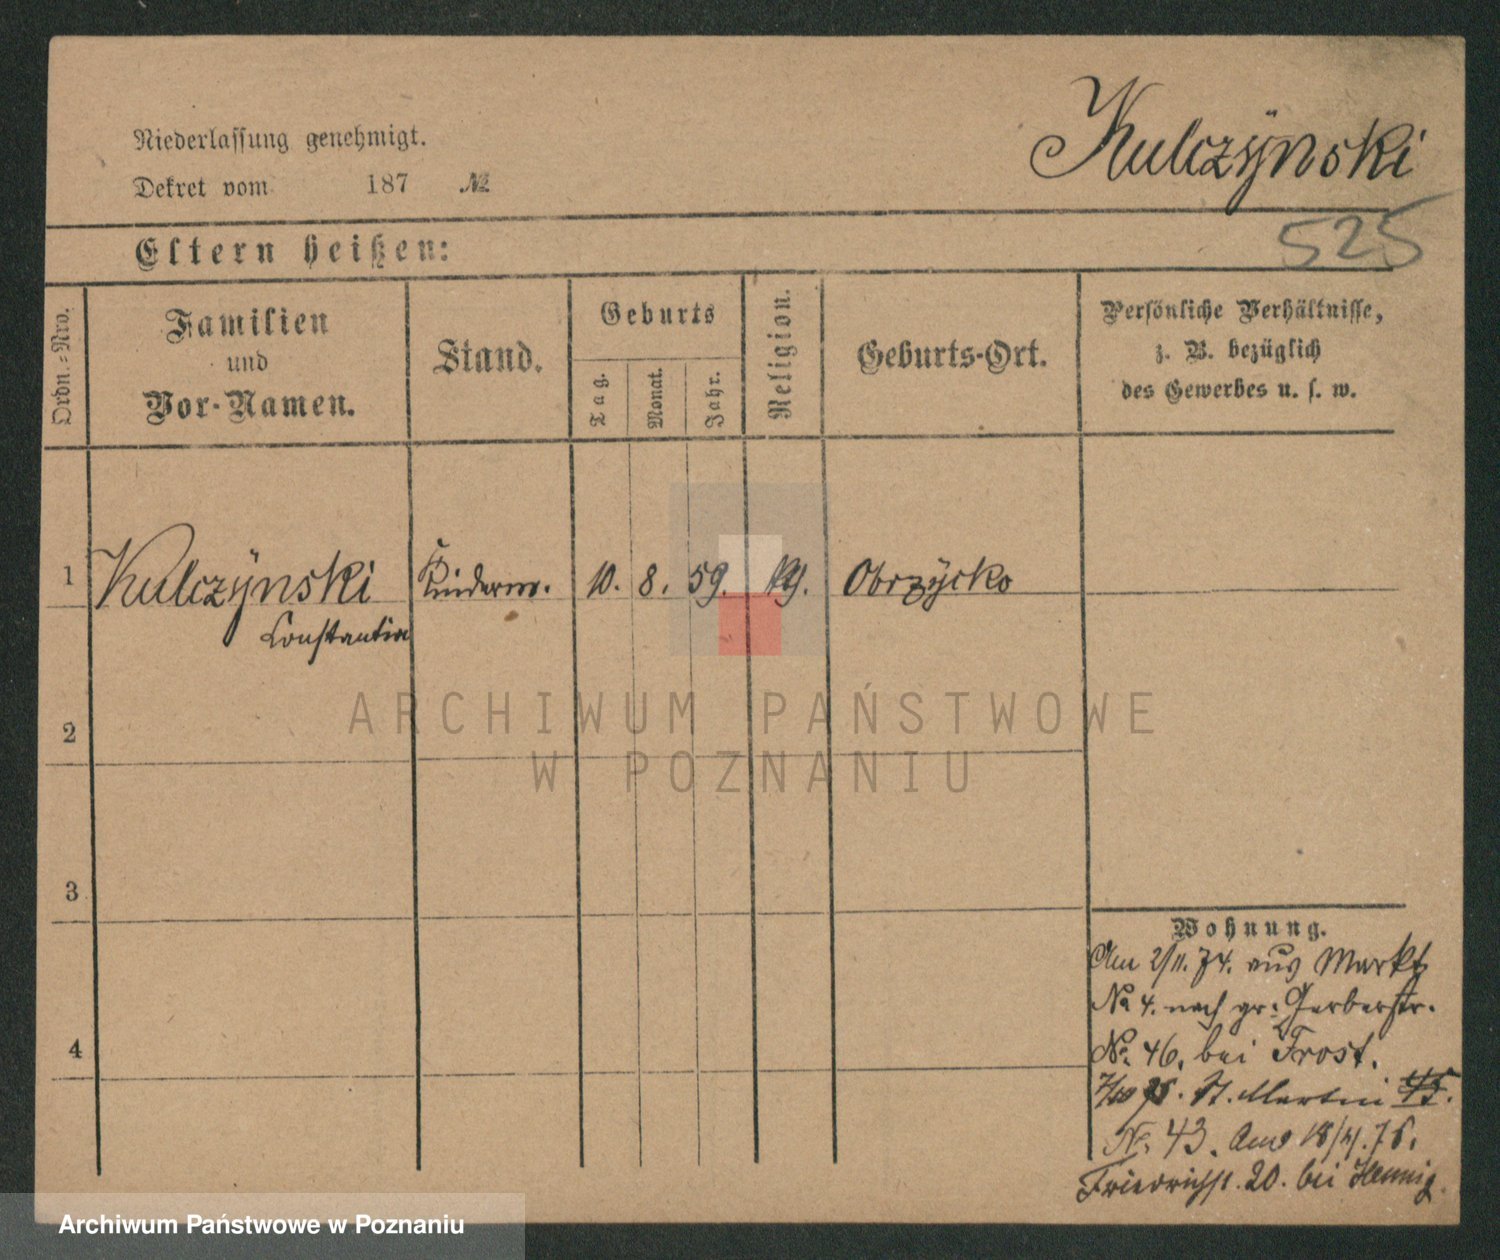 Kulczÿnski
Niederlassung genehmigt.
Dekret vom 187 №
525
Eltern heißen:
Ordn.-Nro.
Familien
und
Vor-Namen.
Stand.
Geburts
Tag.
Monat.
Jahr.
Religion.
Geburts-Ort.
Persönliche Verhältnisse,
z. B. bezüglich
des Gewerbes u. s. w.
1 Kulczÿnski Kinderm. 10. 8. 59. Obrzÿcko
Constantia
2
3
4
Wohnung.
Am 2/11. 74. aus Markt
No 4. nach gr. Gerberstr.
No. 46. bei Frost.
St. Martin 45.
No. 43. And 18/4. 76.
Friedrichst. 20. bei Hennig.
ARCHIWUM PAŃSTWOWE
W POZNANIU
Archiwum Państwowe w Poznaniu